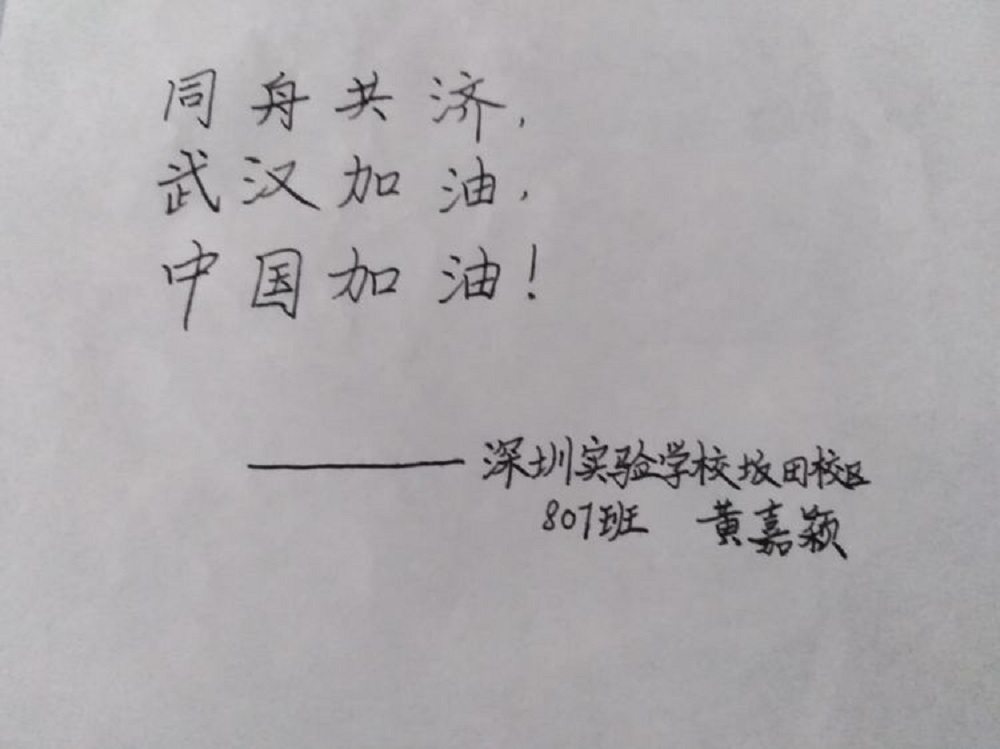 同舟共济,
武汉加油,
中国加油!
——深圳实验学校坂田校区
807班 黄嘉颖